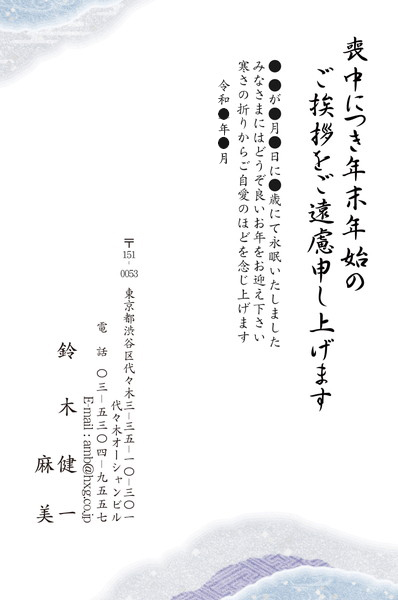 喪中につき年末年始の
ご挨拶をご遠慮申し上げます
●●が●月●日に●歳にて永眠いたしました
みなさまにはどうぞ良いお年をお迎え下さい
寒さの折りからご自愛のほどを念じ上げます
令和●年●月
〒151-0053 東京都渋谷区代々木三-三五-一〇-三〇一
代々木オーシャンビル
電話 〇三-五三〇四-九五五七
E-mail : amb@hxg.co.jp
鈴木健一
麻美